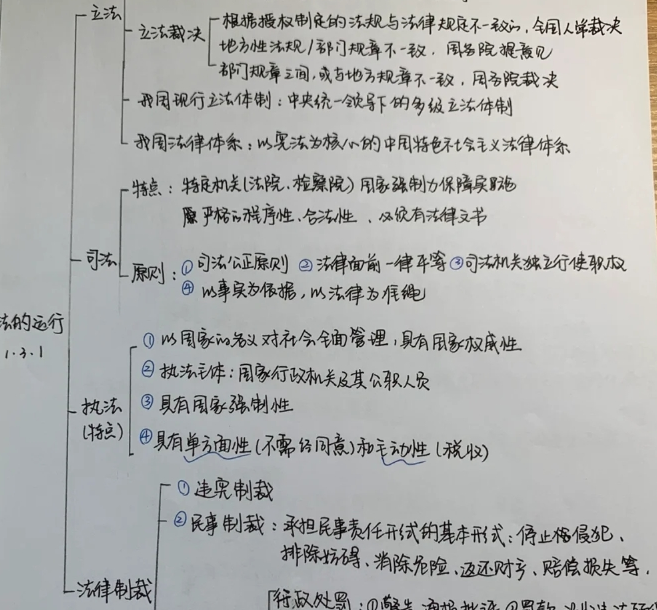 立法
立法裁决
根据授权制定的法规与法律规定不一致的，全国人常裁决
地方性法规/部门规章不一致，国务院提意见
部门规章之间，或与地方规章不一致，国务院裁决
我国现行立法体制：中央统一领导下的多级立法体制
我国法律体系：以宪法为核心的中国特色社会主义法律体系
司法
特点：特定机关(法院、检察院)国家强制力保障实施
严格的程序性、合法性、必须有法律文书
原则：①司法公正原则 ②法律面前一律平等 ③司法机关独立行使职权
④以事实为依据，以法律为准绳
法的运行
1.3.1
执法
(特点)
①以国家的名义对社会全面管理，具有国家权威性
②执法主体：国家行政机关及其公职人员
③具有国家强制性
④具有单方面性(不需经同意)和主动性(税收)
法律制裁
①违宪制裁
②民事制裁：承担民事责任形式的基本形式：停止侵犯、
排除妨碍、消除危险、返还财产、赔偿损失等、
行政处罚：①警告、通报批评②罚款、没收违法所